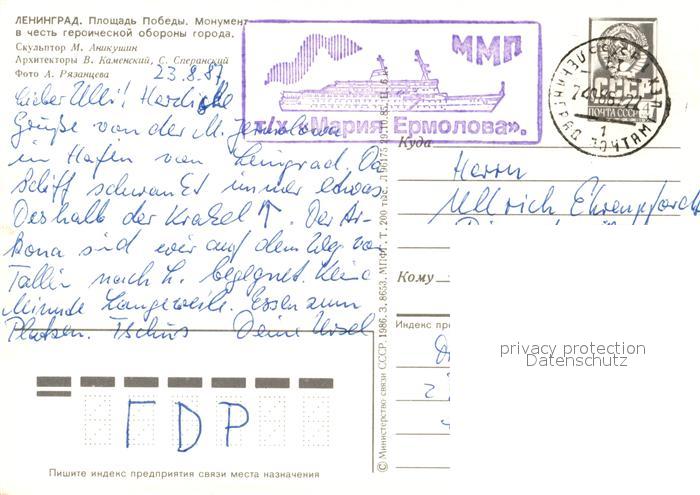 ЛЕНИНГРАД. Площадь Победы. Монумент
в честь героической обороны города.
Скульптор М. Аникушин
Архитекторы В. Каменский, С. Сперанский
Фото А. Рязанцева
23.8.87
Lieber Ulli! Herzliche
Grüße von der M. Jermolowa
im Hafen von Leningrad. Das
Schiff schwankt immer etwas
Deshalb der Krakel ↑. Der Ar-
kona sind wir auf dem Weg von
Tallin nach L. begegnet. Keine
Minute Langeweile. Essen zum
Platzen. Tschüs Deine Ursel
ММП
т/х «Мария Ермолова».
СССР
ПОЧТА СССР
ЛЕНИНГРАД ПОЧТАМТ
1
Куда
Herrn
Ullrich Ehrenpfordt
Кому
Индекс пре
privacy protection
Datenschutz
ГDР
Пишите индекс предприятия связи места назначения
© Министерство связи СССР. 1986. З. 8653. МПФГ. Т. 200 тыс. Л 96175 29.10.85. Ц. 6 к.